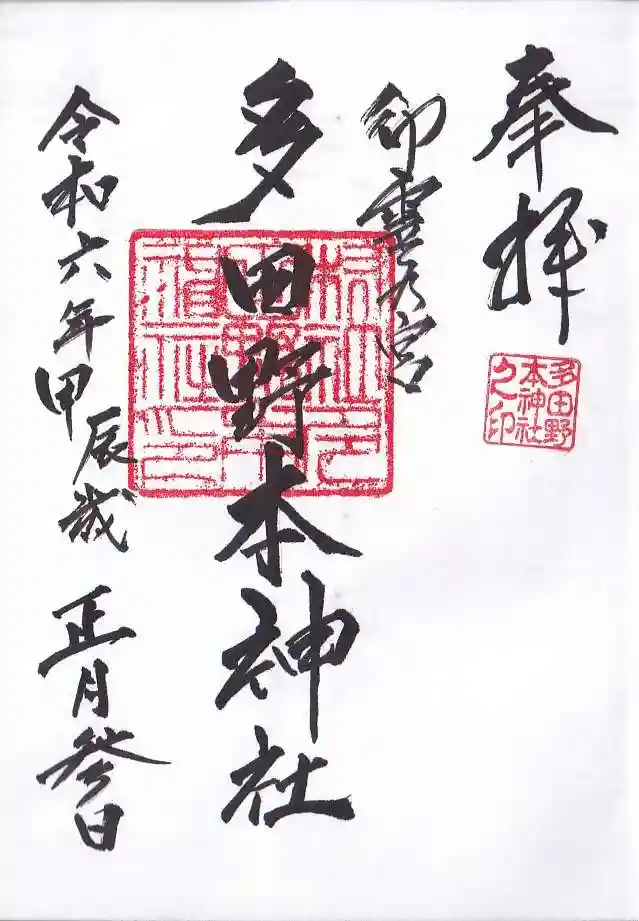 奉拝
多田野
本神社
之印
御霊乃宮
多田野本神社
令和六年甲辰歳 正月参日